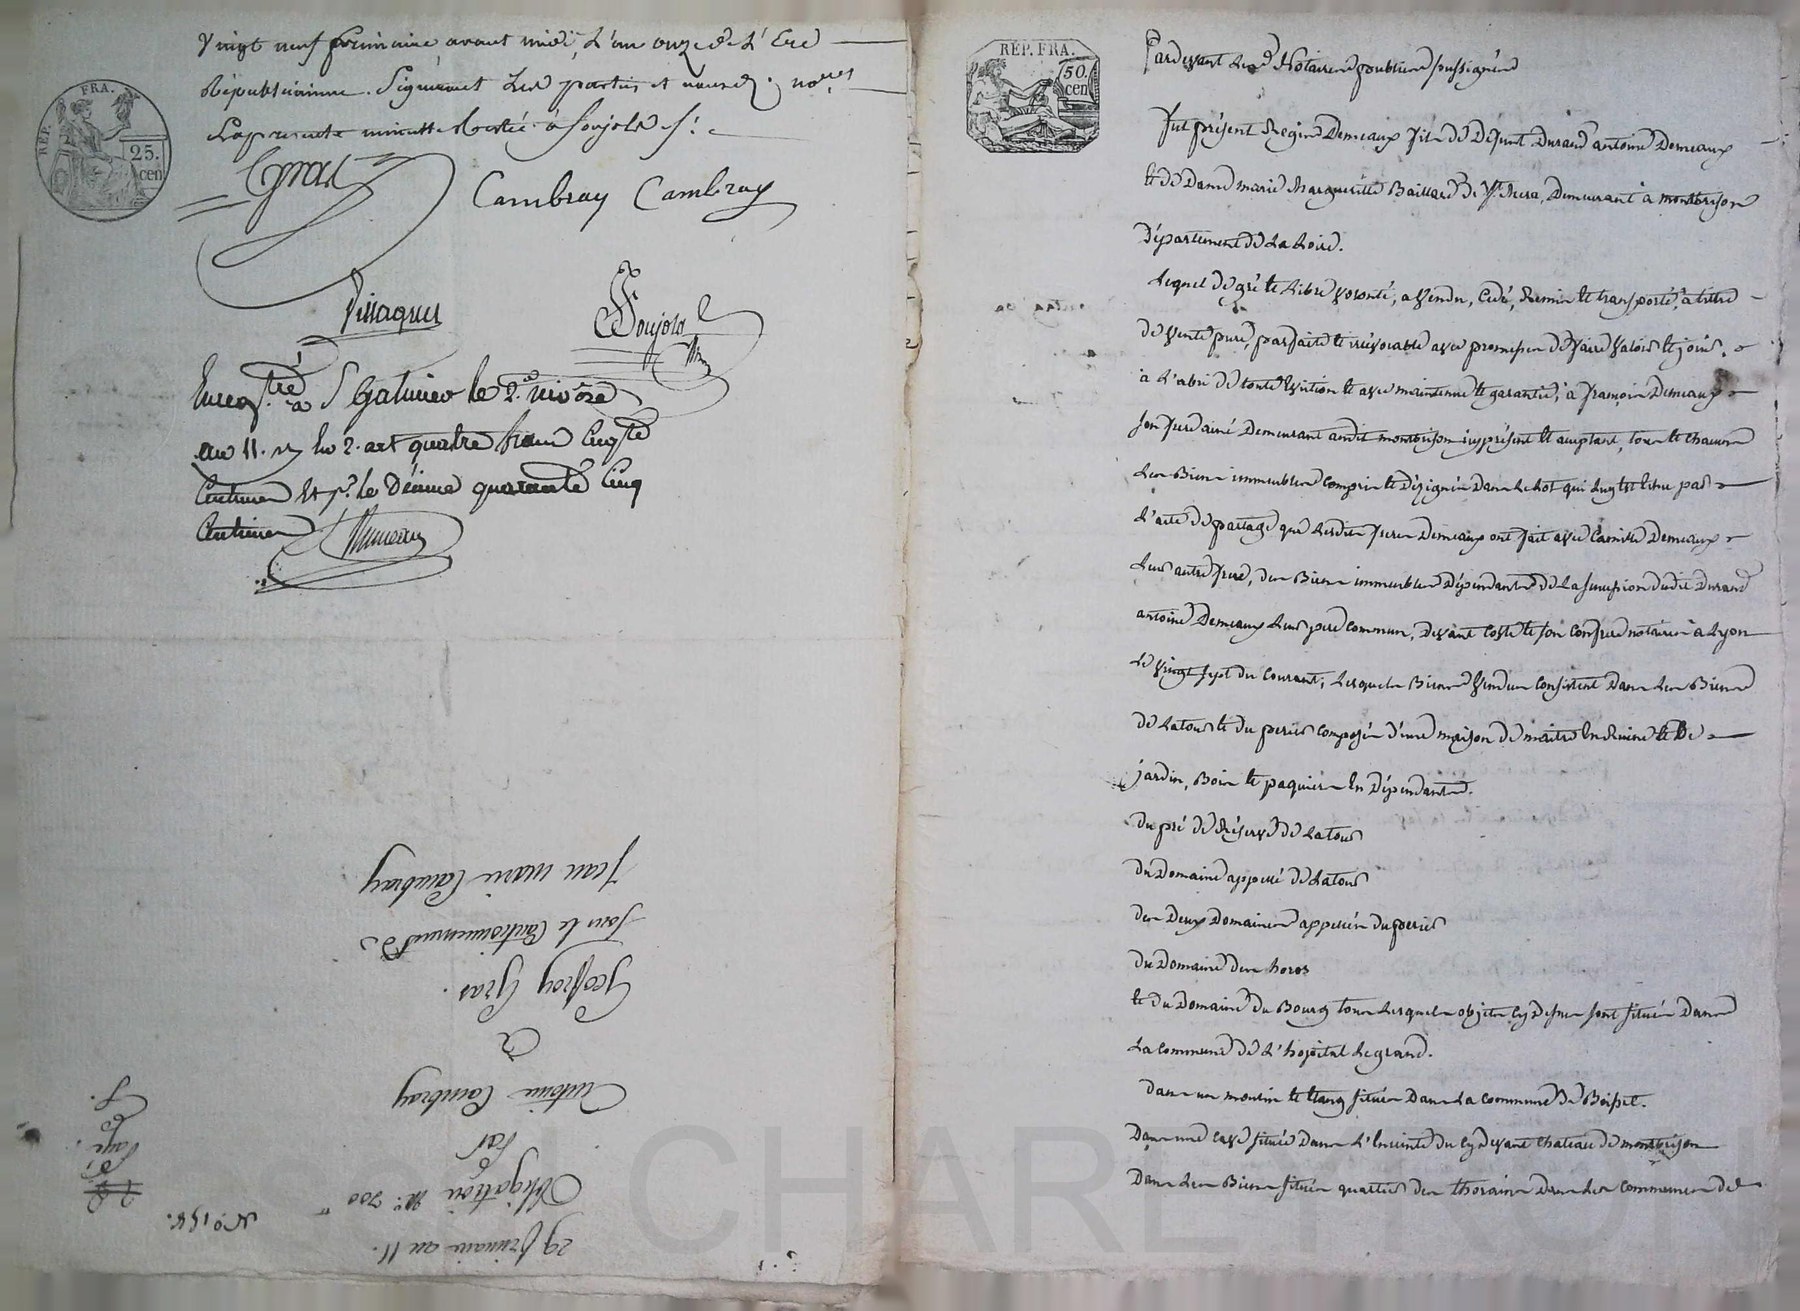 Vingt neuf frimaire avant midi, L'an onze de L'Ere
Républicainne. Signeront Les parties et nous d. nores
La presente minutte Restée à Soujols S.
REP. FRA.
25. cen
Gras
Cambray Cambray
Vissaguet
Soujols
Enregtré à St Galmier le 2. nivôse
an 11. quatre francs Cinqte
Centimes Et pr. le Décime quarante Cinq
Centimes
Jean marie Cambray
Sous le Cautionnement de
Geoffroy Gras.
&
Antoine Cambray
Par
Obligation 300
29 frimaire an 11.
Payé
REP. FRA.
50. cen
Pardevant Les Notaires publics soussignés
fut présent Regis Demeaux fils de Défunt Durand antoine Demeaux
et de Dame marie Marguerite Baillard de Demeurant à montbrison
Département de La Loire.
Lequel de gré et Libre volonté, a vendu, Cédé, Remis et transporté, à titre
de vente pure, parfaite et irrévocable avec promesse de faire valoir et jouir
à L'abri de toute Eviction et avec maintenue et garantie, à françois Demeaux
son frere ainé Demeurant audit montbrison icy présent et acceptant, tous et chacuns
Les Biens immeubles compris et désignés Dans Le Lot qui Luy est échu par
L'acte de partage que Lesdits freres Demeaux ont fait avec Camille Demeaux
Leur autre frere, des Biens immeubles Dépendants de La succession dudit Durand
antoine Demeaux Leur pere commun, devant Coste et son Confrere notaires à Lyon
Le vingt sept du Courant; Lesquels Biens vendus Consistent Dans Les Biens
de Latour et du perier composés d'une maison de maitre En Ruine et de
jardin, Bois et paquiers En dépendants.
du pré de Réserve de Latour
du Domaine appellé de Latour
des Deux Domaines appellés du perier
du Domaine des horos
et du Domaine du Bourg tous Lesquels objets cy Dessus sont situés Dans
La commune de L'hopital Legrand.
Dans un moulin et Etang situés Dans La Commune de Boisset.
Dans une cave située Dans L'Enceinte du cy devant chateau de montbrison
Dans Les Biens situés quartier des thorains Dans Les Communes de
CHARLYRON